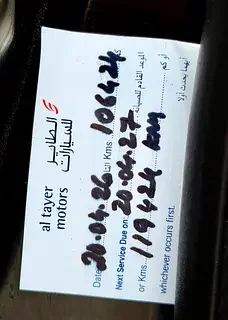 الطاير
للسيارات
al tayer
motors
Date 20.04.26 Kms 106424
Next Service Due on 20.04.27 الموعد القادم للصيانة
or Kms 119424 KM أو كم
whichever occurs first. أيهما يحدث أولا